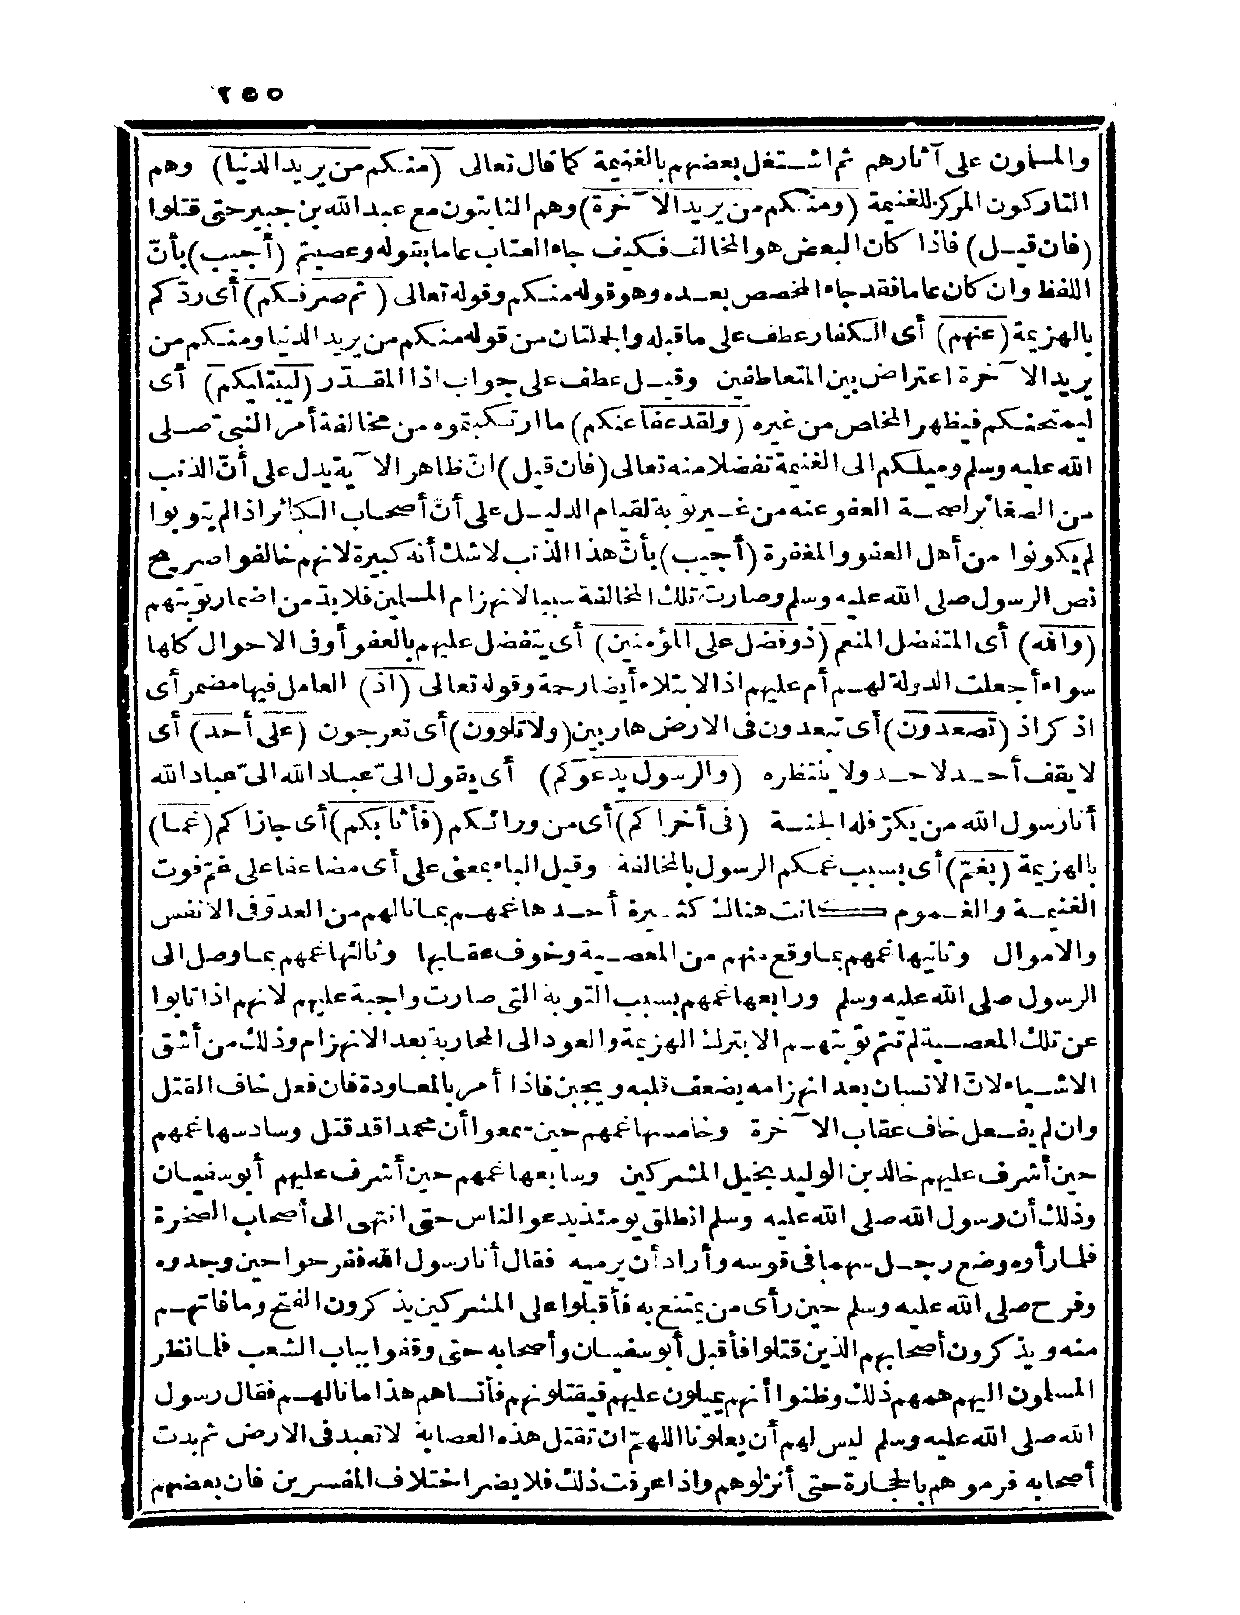 ٢٥٥
والمسلمون على آثارهم ثم اشتغل بعضهم بالغنيمة كما قال تعالى (منكم من يريد الدنيا) وهم
التاركون المركز للغنيمة (ومنكم من يريد الآخرة) وهم الثابتون مع عبد الله بن جبير حتى قتلوا
(فان قيل) فاذا كان البعض هو المخالف فكيف جاء العتاب عاما بقوله وعصيتم (أجيب) بأنّ
اللفظ وان كان عاما فقد جاء المخصص بعده وهو قوله منكم وقوله تعالى (ثم صرفكم) أى ردّكم
بالهزيمة (عنهم) أى الكفار عطف على ما قبله والجملتان من قوله منكم من يريد الدنيا ومنكم من
يريد الآخرة اعتراض بين المتعاطفين وقيل عطف على جواب اذا المقدّر (ليبتليكم) أى
ليمتحنكم فيظهر المخلص من غيره (ولقد عفا عنكم) ما ارتكبتموه من مخالفة أمر النبىّ صلى
الله عليه وسلم وميلكم الى الغنيمة تفضلا منه تعالى (فان قيل) انّ ظاهر الآية يدل على أنّ الذنب
من الصغائر لصحة العفو عنه من غير توبة لقيام الدليل على أنّ أصحاب الكبائر اذا لم يتوبوا
لم يكونوا من أهل العفو والمغفرة (أجيب) بأنّ هذا الذنب لا شك أنه كبيرة لانهم خالفوا صريح
نص الرسول صلى الله عليه وسلم وصارت تلك المخالفة سببا لانهزام المسلمين فلا بدّ من اضمار توبتهم
(والله) أى المتفضل المنعم (ذو فضل على المؤمنين) أى يتفضل عليهم بالعفو أو فى الاحوال كلها
سواء أجعلت الدولة لهم أم عليهم اذ الابتلاء أيضا رحمة وقوله تعالى (اذ) العامل فيها مضمر أى
اذكر اذ (تصعدون) أى تبعدون فى الارض هاربين (ولا تلوون) أى تعرجون (على أحد) أى
لا يقف أحد لاحد ولا ينتظره (والرسول يدعوكم) أى يقول الىّ عباد الله الىّ عباد الله
أنا رسول الله من يكرّ فله الجنة (فى أخراكم) أى من ورائكم (فأثابكم) أى جازاكم (غما)
بالهزيمة (بغمّ) أى بسبب غمكم الرسول بالمخالفة وقيل الباء بمعنى على أى مضاعفا على غمّ فوت
الغنيمة والغموم كانت هنالك كثيرة أحدها غمهم بما نالهم من العدوّ فى الانفس
والاموال وثانيها غمهم بما وقع منهم من المعصية وخوف عقابها وثالثها غمهم بما وصل الى
الرسول صلى الله عليه وسلم ورابعها غمهم بسبب التوبة التى صارت واجبة عليهم لانهم اذا تابوا
عن تلك المعصية لم تتم توبتهم الا بترك الهزيمة والعود الى المحاربة بعد الانهزام وذلك من أشق
الاشياء لانّ الانسان بعد انهزامه يضعف قلبه ويجبن فاذا أمر بالمعاودة فان فعل خاف القتل
وان لم يفعل خاف عقاب الآخرة وخامسها غمهم حين سمعوا أن محمدا قد قتل وسادسها غمهم
حين أشرف عليهم خالد بن الوليد بخيل المشركين وسابعها غمهم حين أشرف عليهم أبو سفيان
وذلك أن رسول الله صلى الله عليه وسلم انطلق يومئذ يدعو الناس حتى انتهى الى أصحاب الصخرة
فلما رأوه وضع رجل سهما فى قوسه وأراد أن يرميه فقال أنا رسول الله ففرحوا حين وجدوه
وفرح صلى الله عليه وسلم حين رأى من يمتنع به فأقبلوا على المشركين يذكرون الفتح وما فاتهم
منه ويذكرون أصحابهم الذين قتلوا فأقبل أبو سفيان وأصحابه حتى وقفوا بباب الشعب فلما نظر
المسلمون اليهم همهم ذلك وظنوا أنهم يميلون عليهم فيقتلونهم فأنساهم هذا ما نالهم فقال رسول
الله صلى الله عليه وسلم ليس لهم أن يعلونا اللهمّ ان تقتل هذه العصابة لا تعبد فى الارض ثم بدت
أصحابه فرموهم بالحجارة حتى أنزلوهم واذا عرفت ذلك فلا يضر اختلاف المفسرين فان بعضهم